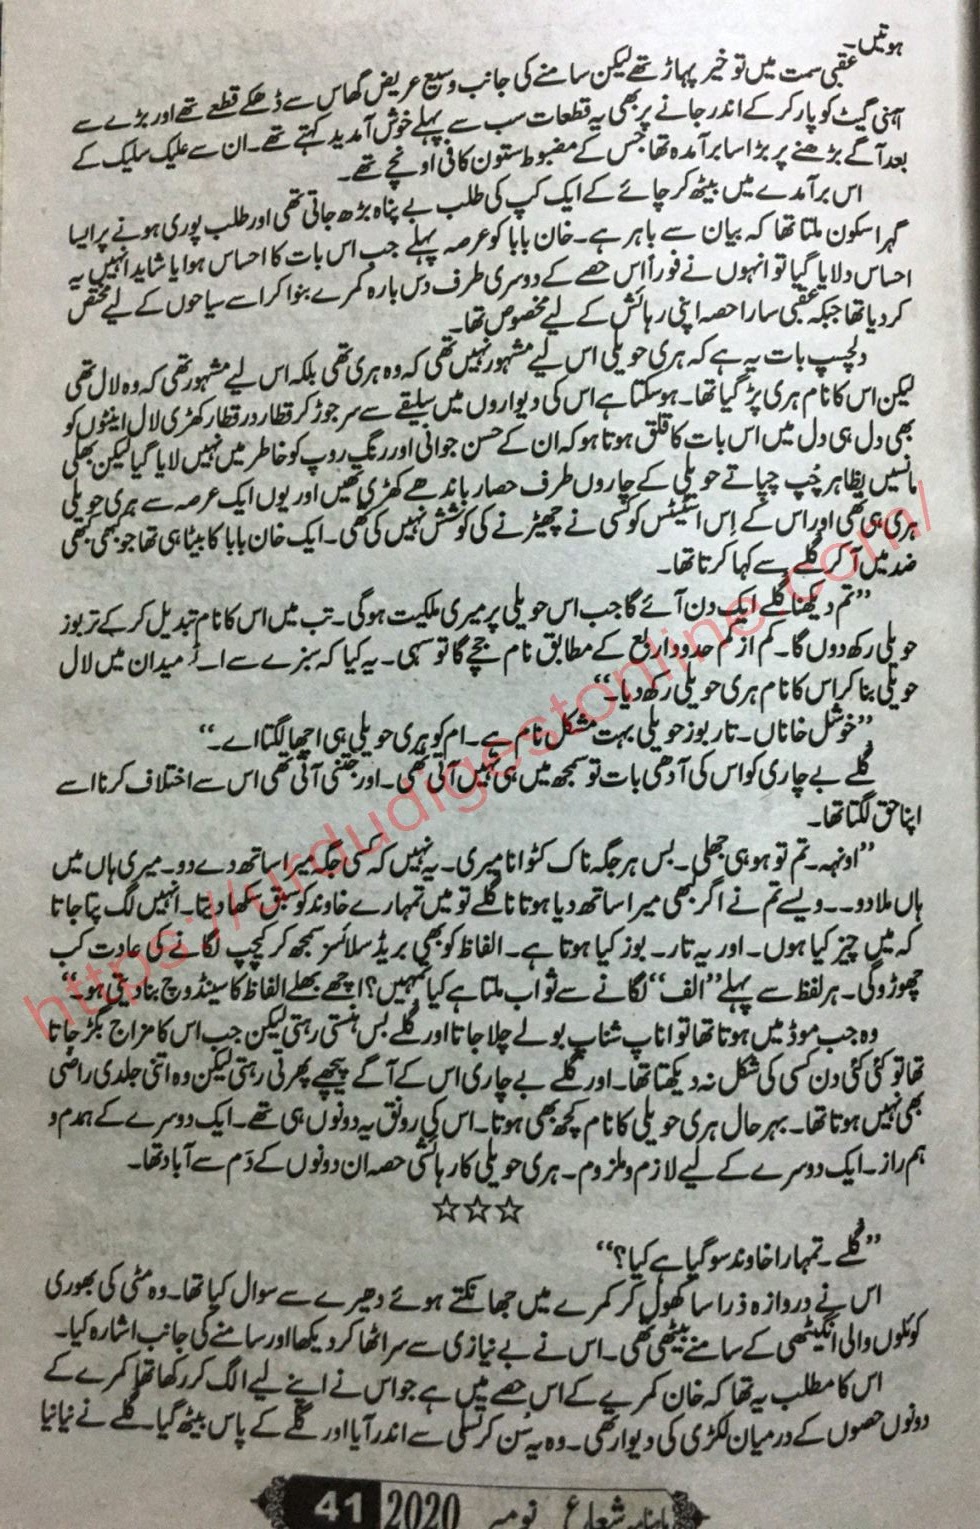 ہوتیں۔
عقبی سمت میں تو خیر پہاڑ تھے لیکن سامنے کی جانب وسیع عریض گھاس سے ڈھکے قطعے تھے اور بڑے سے
آہنی گیٹ کو پار کر کے اندر جانے پر بھی یہ قطعات سب سے پہلے خوش آمدید کہتے تھے۔ ان سے علیک سلیک کے
بعد آگے بڑھنے پر بڑا سا برآمدہ تھا جس کے مضبوط ستون کافی اونچے تھے۔
اس برآمدے میں بیٹھ کر چائے کے ایک کپ کی طلب بے پناہ بڑھ جاتی تھی اور طلب پوری ہونے پر ایسا
گہرا سکون ملتا تھا کہ بیان سے باہر ہے۔ خان بابا کو عرصہ پہلے جب اس بات کا احساس ہوا یا شاید انہیں یہ
احساس دلایا گیا تو انہوں نے فوراً اس حصے کے دوسری طرف دس بارہ کمرے بنوا کر اسے سیاحوں کے لیے مختص
کر دیا تھا جبکہ عقبی سارا حصہ اپنی رہائش کے لیے مخصوص تھا۔
دلچسپ بات یہ ہے کہ ہری حویلی اس لیے مشہور نہیں تھی کہ وہ ہری تھی بلکہ اس لیے مشہور تھی کہ وہ لال تھی
لیکن اس کا نام ہری پڑ گیا تھا۔ ہو سکتا ہے اس کی دیواروں میں سلیقے سے سر جوڑ کر قطار در قطار کھڑی لال اینٹوں کو
بھی دل ہی دل میں اس بات کا قلق ہوتا ہو کہ ان کے حسن جوانی اور رنگ روپ کو خاطر میں نہیں لایا گیا لیکن بھلی
مانسیں بظاہر چُپ چپاتے حویلی کے چاروں طرف حصار باندھے کھڑی تھیں اور یوں ایک عرصہ سے ہری حویلی
ہری ہی تھی اور اس کے اِس اسٹیٹس کو کسی نے چھیڑنے کی کوشش نہیں کی تھی۔ ایک خان بابا کا بیٹا ہی تھا جو کبھی کبھی
ضد میں آ کر گلے سے کہا کرتا تھا۔
”تم دیکھنا گلے ایک دن آئے گا جب اس حویلی پر میری ملکیت ہوگی۔ تب میں اس کا نام تبدیل کر کے تربوز
حویلی رکھ دوں گا۔ کم از کم حدود اربع کے مطابق نام جچے گا تو سہی۔ یہ کیا کہ سبزے سے اٹے میدان میں لال
حویلی بنا کر اس کا نام ہری حویلی رکھ دیا۔“
”خوشل خاناں۔ تاربوز حویلی بہت مشکل نام ہے۔ ام کو ہری حویلی ہی اچھا لگتا اے۔“
گلے بے چاری کو اس کی آدھی بات تو سمجھ میں ہی نہیں آئی تھی۔ اور جتنی آئی تھی اس سے اختلاف کرنا اسے
اپنا حق لگتا تھا۔
”اونہہ۔ تم تو ہو ہی جھلی۔ بس ہر جگہ ناک کٹوانا میری۔ یہ نہیں کہ کسی جگہ میرا ساتھ دے دو۔ میری ہاں میں
ہاں ملا دو۔۔ ویسے تم نے اگر کبھی میرا ساتھ دیا ہوتا نا گلے تو میں تمہارے خاوند کو سبق سکھا دیتا۔ انہیں لگ پتا جاتا
کہ میں چیز کیا ہوں۔ اور یہ تار۔ بوز کیا ہوتا ہے۔ الفاظ کو بھی بریڈ سلائسز سمجھ کر کیچپ لگانے کی عادت کب
چھوڑو گی۔ ہر لفظ سے پہلے ”الف“ لگانے سے ثواب ملتا ہے کیا تمہیں؟ اچھے بھلے الفاظ کا سینڈوچ بنا دیتی ہو۔“
وہ جب موڈ میں ہوتا تھا تو اناپ شناپ بولے چلا جاتا اور گلے بس ہنستی رہتی لیکن جب اس کا مزاج بگڑ جاتا
تھا تو کئی کئی دن کسی کی شکل نہ دیکھتا تھا۔ اور گلے بے چاری اس کے آگے پیچھے پھرتی رہتی لیکن وہ اتنی جلدی راضی
بھی نہیں ہوتا تھا۔ بہرحال ہری حویلی کا نام کچھ بھی ہوتا۔ اس کی رونق یہ دونوں ہی تھے۔ ایک دوسرے کے ہمدم و
ہم راز۔ ایک دوسرے کے لیے لازم و ملزوم۔ ہری حویلی کا رہائشی حصہ ان دونوں کے دَم سے آباد تھا۔
☆☆☆
”گلے۔ تمہارا خاوند سو گیا ہے کیا؟“
اس نے دروازہ ذرا سا کھول کر کمرے میں جھانکتے ہوئے دھیرے سے سوال کیا تھا۔ وہ مٹی کی بھوری
کوئلوں والی انگیٹھی کے سامنے بیٹھی تھی۔ اس نے بے نیازی سے سر اٹھا کر دیکھا اور سامنے کی جانب اشارہ کیا۔
اس کا مطلب یہ تھا کہ خان کمرے کے اس حصے میں ہے جو اس نے اپنے لیے الگ کر رکھا تھا کمرے کے
دونوں حصوں کے درمیان لکڑی کی دیوار تھی۔ وہ یہ سُن کر تسلی سے اندر آیا اور گلے کے پاس بیٹھ گیا۔ گلے نے نیا نیا
ماہنامہ شعاع نومبر 2020 41
https://urdudigestonline.com/